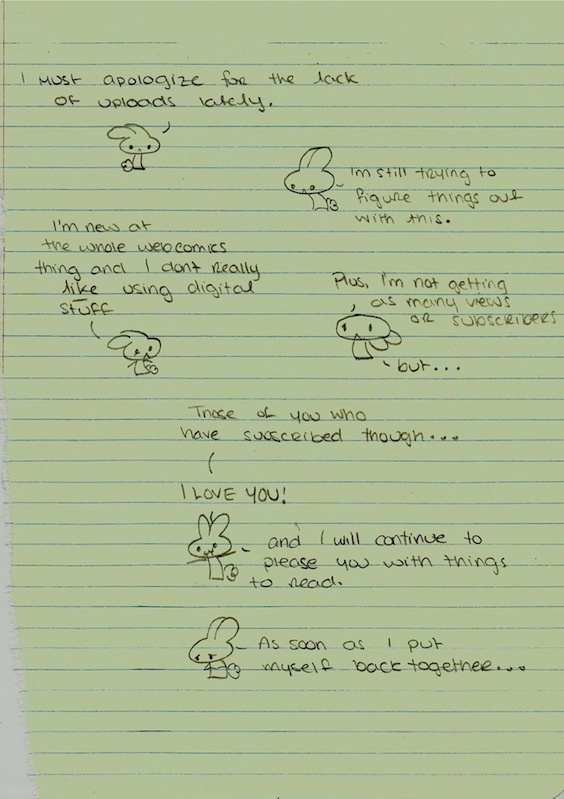 I must apologize for the lack
of uploads lately.
Im still trying to
figure things out
with this.
I'm new at
the whole webcomics
thing and I dont really
like using digital
stuff
Plus, I'm not getting
as many views
or subscribers
but...
Those of you who
have subscribed though...
I LOVE YOU!
and I will continue to
please you with things
to read.
As soon as I put
myself back together...